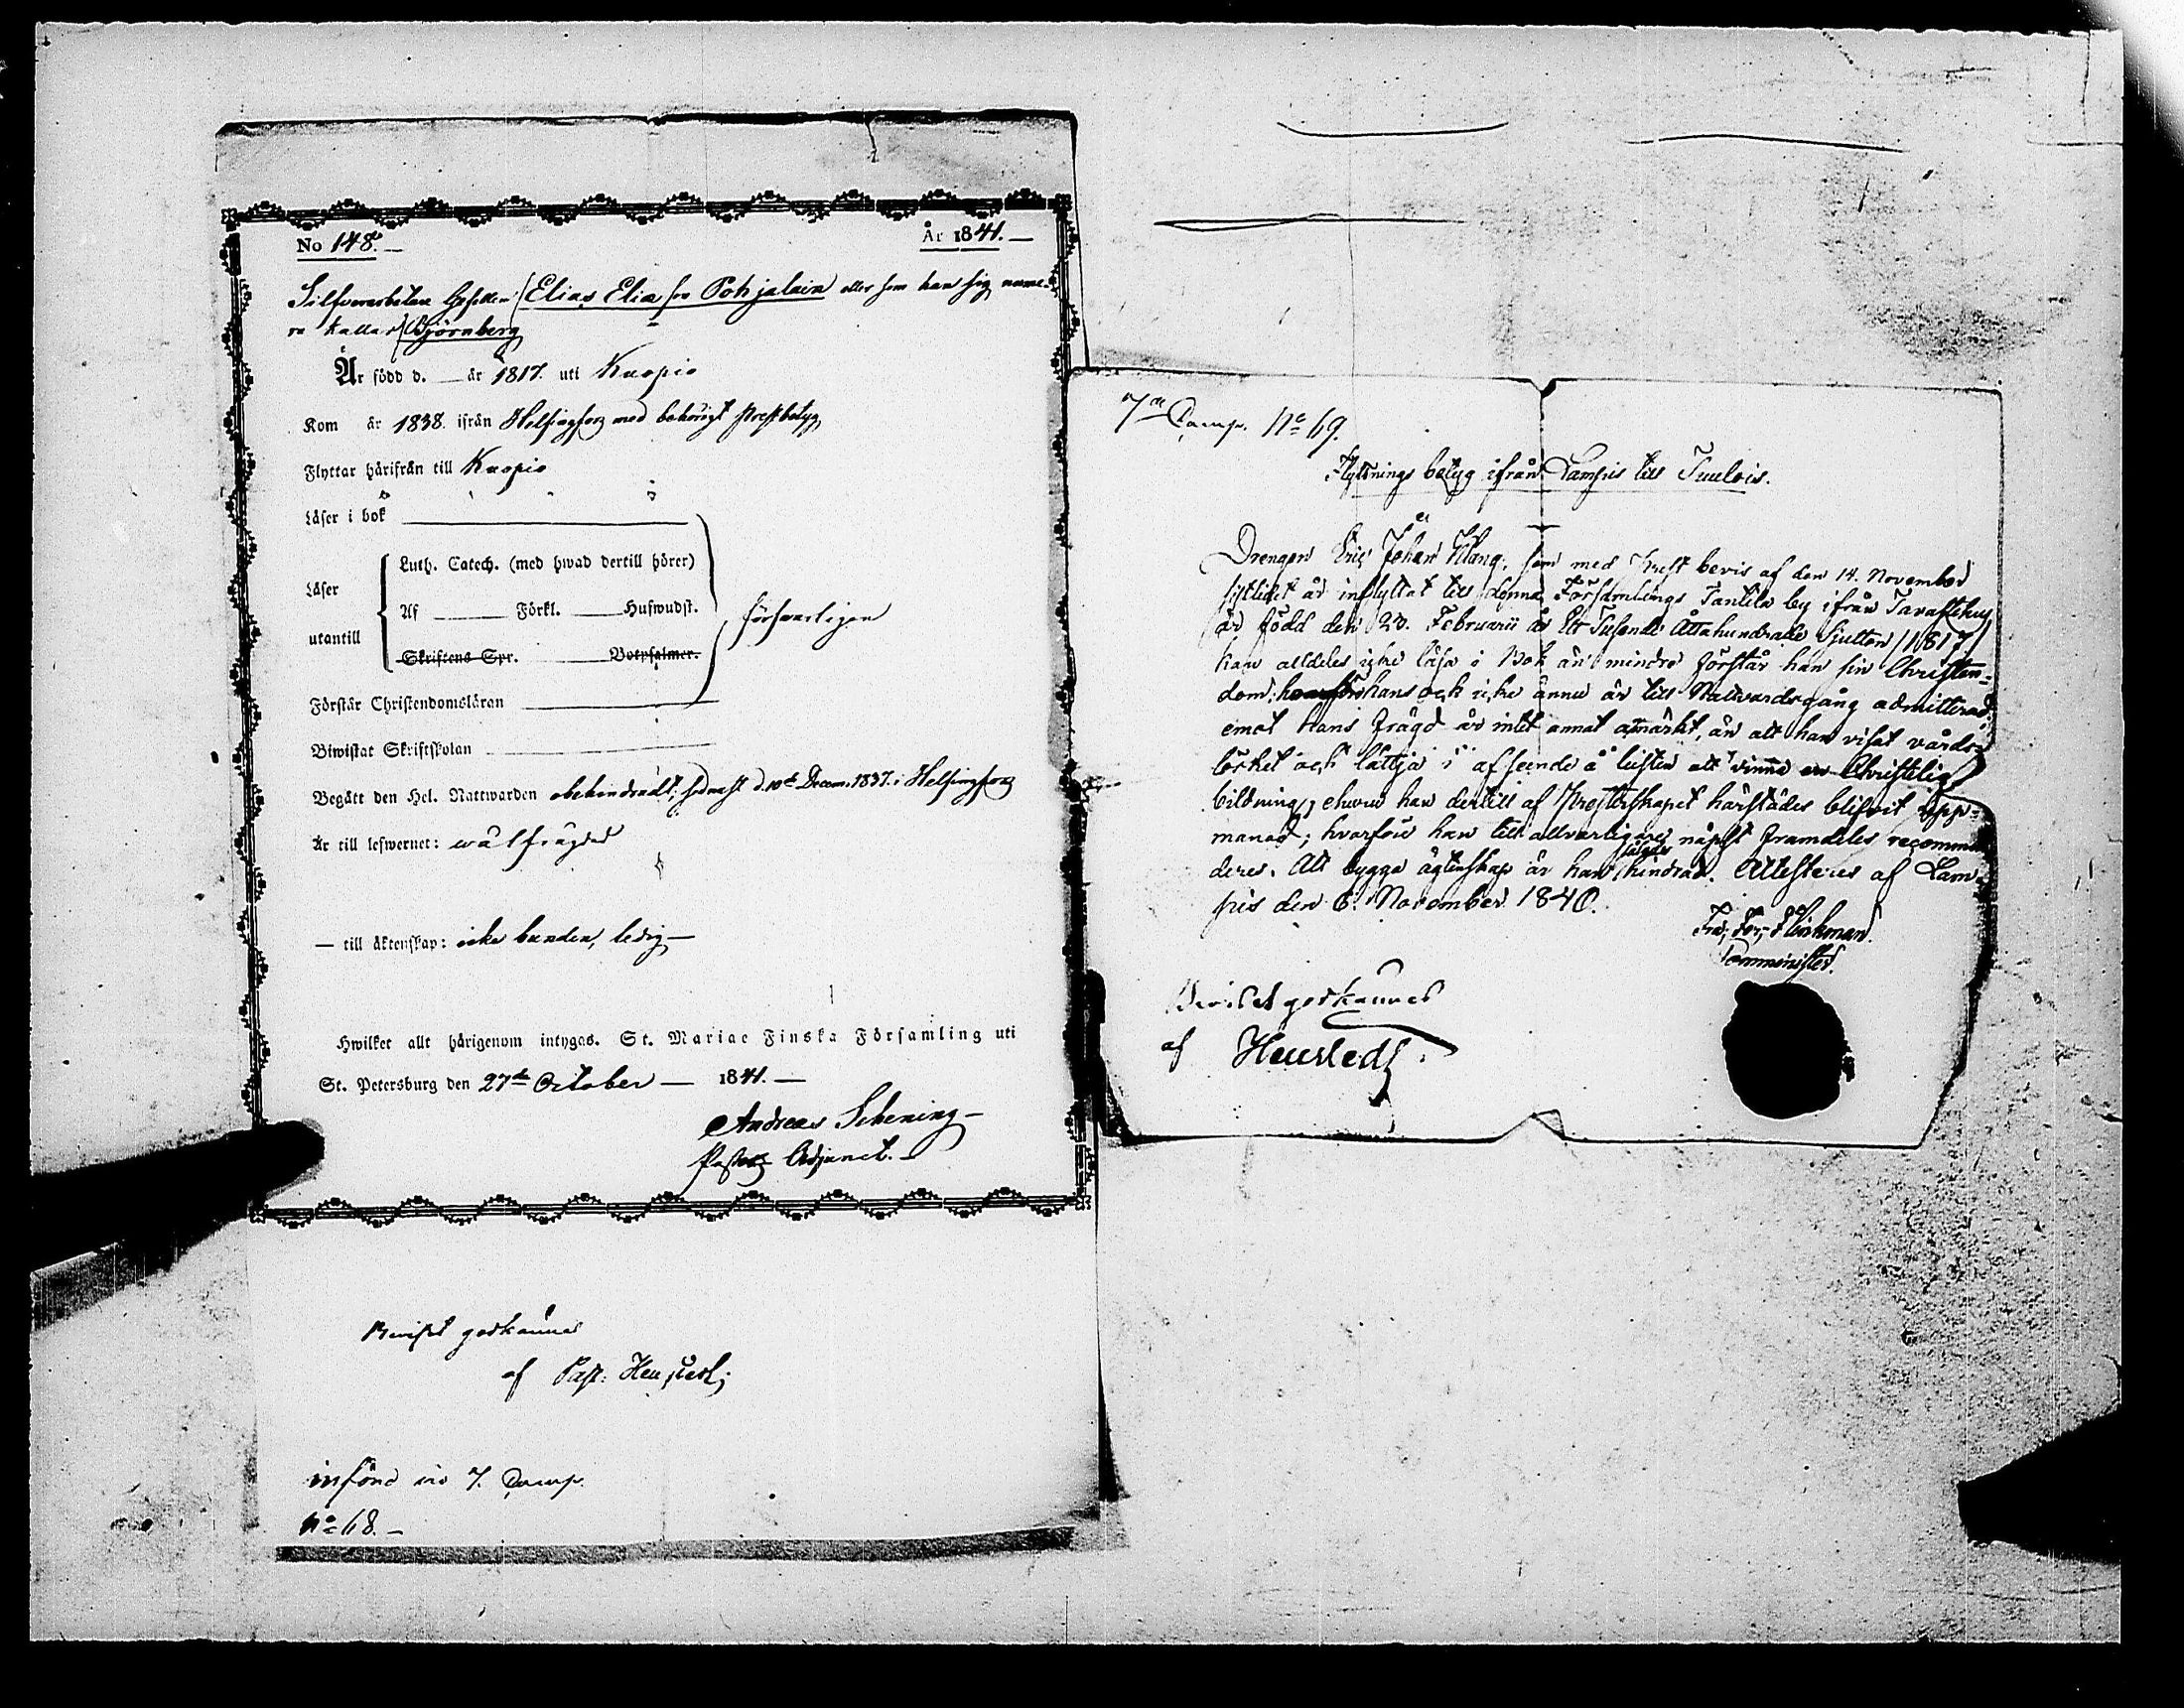 No 148. —
År 1841. —
Silfverarbetare Gesellen Elias Elia son Pohjalain eller som han sig nume-
ra kallar Björnberg
Är född d. — år 1817. uti Kuopio
Kom år 1838. ifrån Helsingfors med behörigt Prestbetyg
Flyttar härifrån till Kuopio
Läser i bok
Läser utantill
Luth. Catech. (med hwad dertill hörer)
Af Förkl. Huswudst.
Skriftens Spr. Botpsalmer.
försvarligen
Förstår Christendomsläran
Biwistat Skriftskolan
Begått den Hel. Nattwarden obehindradt; sednast d. 10de Decem. 1837. i Helsingfors
Är till lefwernet: wälfrägdad
— till äktenskap: icke bunden, ledig —
Hwilket allt härigenom intygas. St. Mariae Finska Församling uti
St. Petersburg den 27de October — 1841. —
Andreas Schening —
Pastors Adjunct. —
Beviset godkännes
af Past: Heurlin;
införd vid 7. Camp.
No 68. —
7de Camp. No 69.
Flyttnings betyg ifrån Lampis till Tuulois.
Drengen Eric Johan Klang, som med Prest bevis af den 14. November
sistlidet år inflyttat till denna Församlings Tantila by ifrån Tavastehus
är född den 20. Februarii år Ett Tusende Åttahundrade Sjutton /1817/
kan alldeles icke läsa i Bok än mindre förstår han sin Christen-
dom; hans och icke ännu är till Nattvardsgång admitterad;
emot hans frägd är intet annat anmärkt, än att han visat vårds-
löshet och lättja i afseende å lusten att vinna en Christelig
bildning, ehuru han dertill af Presterskapet härstädes blifvit upp-
manad; hvarföre han till allvarligare näpst framdeles recommen-
deras. Att bygga ägtenskap är han således hindrad. Attesteres af Lam-
pis den 6. November 1840.
Flinkman.
Comminister.
Beviset godkännes
af